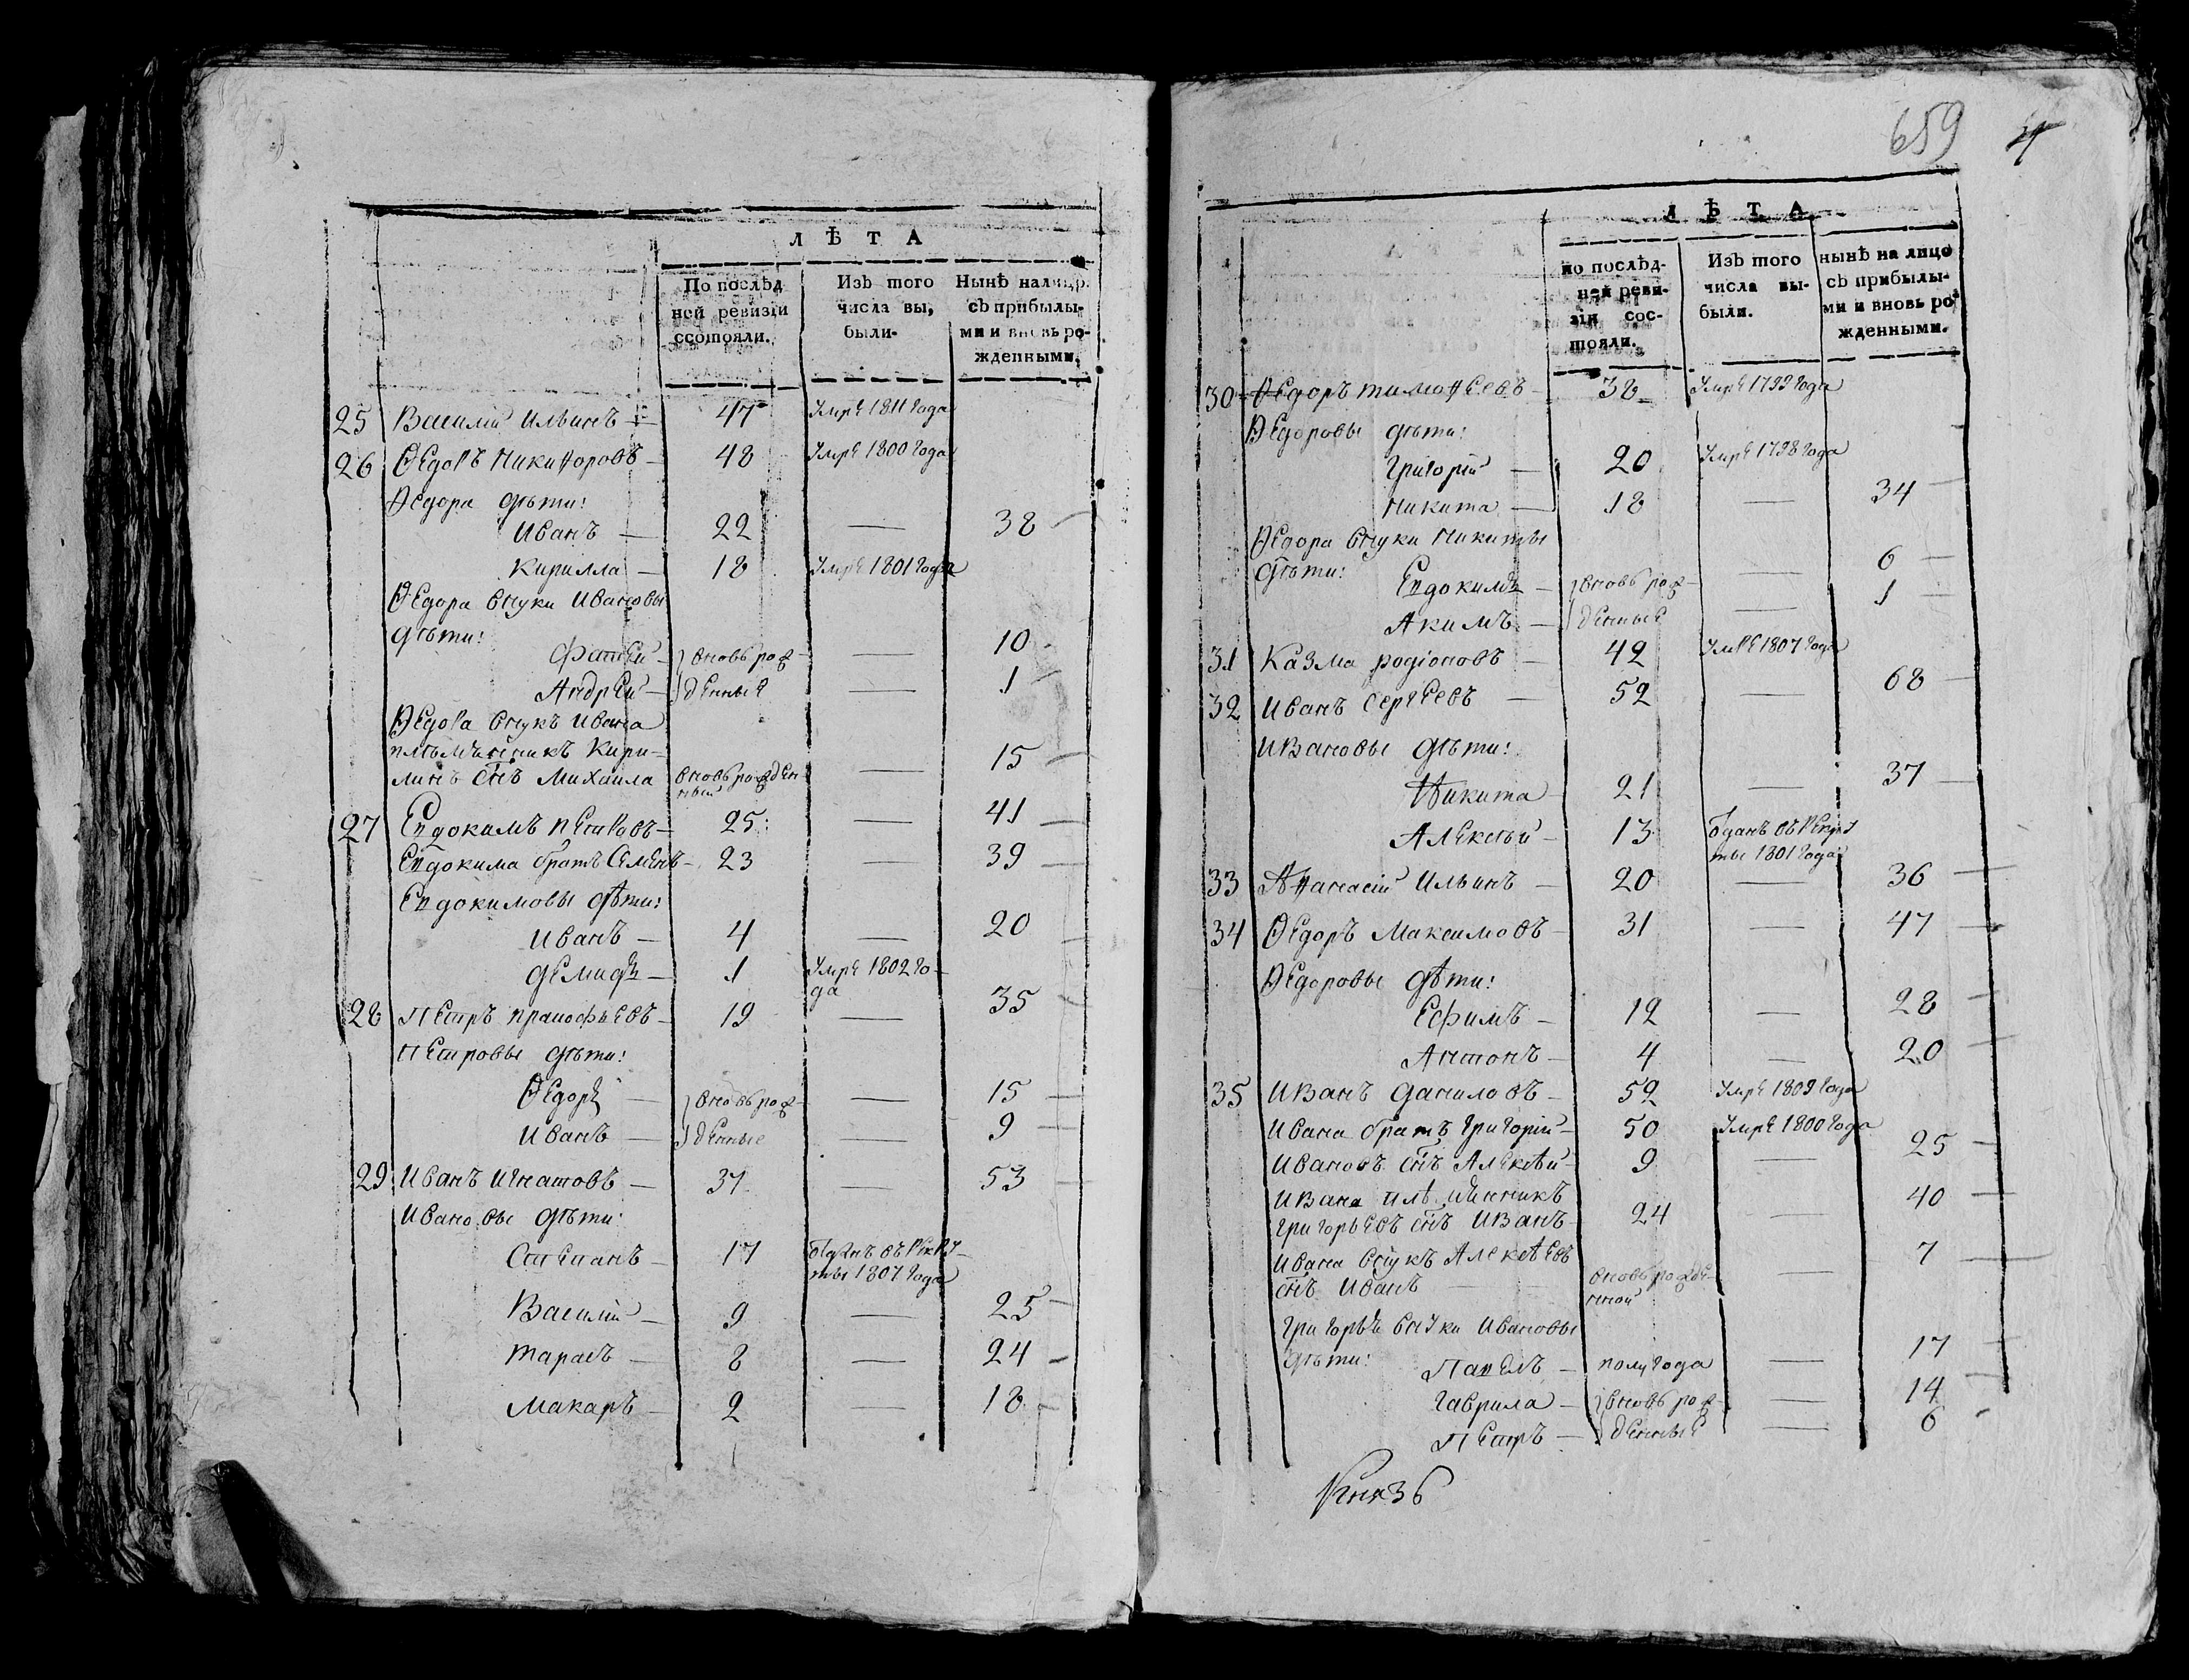 Л Ѣ Т А
По послѣд
ней ревизіи
ссотояли.
Изъ того
числа вы,
были-
Нынѣ налицо
съ прибылы-
ми и вновь ро-
жденными.
25 Василій Ильинъ — 47 Умре 1811 года
26 Ѳедоръ Никифоровъ — 48 Умре 1800 года
Ѳедора дѣти:
Иванъ — 22 — 38
Кирилла — 18 Умре 1801 года
Ѳедора внуки Ивановы
дѣти:
Фатей — вновь рож- — 10
Андрей — денные — 1
Ѳедора внукъ Ивана
племянникъ Кири-
линъ снъ Михаила вновь рожден- — 15
ный
27 Евдокимъ Петровъ — 25 — 41
Евдокима братъ Семенъ — 23 — 39
Евдокимовы дѣти:
Иванъ — 4 — 20
Демидъ — 1 Умре 1802 го-
да
28 Петръ Прапофьевъ — 19 — 35
Петровы дѣти:
Ѳедоръ — вновь рож- — 15
Иванъ — денные — 9
29 Иванъ Игнатовъ — 37 — 53
Ивановы дѣти:
Степанъ — 17 Отданъ въ рекру-
ты 1807 года
Василій — 9 — 25
Тарасъ — 8 — 24
Макаръ — 2 — 18
659 4
Л Ѣ Т А
по послѣд-
ней реви-
зіи сос-
тояли.
Изъ того
числа вы-
были.
нынѣ на лицо
съ прибылы-
ми и вновь ро-
жденными.
30 Ѳедоръ Тимофеевъ — 38 Умре 1799 года
Ѳедоровы дѣти:
Григорій — 20 Умре 1798 года
Никита — 18 — 34
Ѳедора внуки Никиты
дѣти: Евдокимъ — вновь рож- — 6
Акимъ — денные — 1
31 Казма Родіоновъ — 42 Умре 1807 года
32 Иванъ Сергеевъ — 52 — 68
Ивановы дѣти:
Никита — 21 — 37
Алексѣй — 13 Отданъ въ рекру
ты 1801 года
33 Афанасій Ильинъ — 20 — 36
34 Ѳедоръ Максимовъ — 31 — 47
Ѳедоровы дѣти:
Ефимъ — 12 — 28
Антонъ — 4 — 20
35 Иванъ Даниловъ — 52 Умре 1809 года
Ивана братъ Григорій — 50 Умре 1800 года
Ивановъ снъ Алексѣй — 9 — 25
Ивана племянникъ
Григорьевъ снъ Иванъ — 24 — 40
Ивана внукъ Алексѣевъ
снъ Иванъ — вновь рожде- — 7
нной
Григорья внуки Ивановы
дѣти: Павелъ — полугода — 17
Гаврила — вновь рож- — 14
Петръ — денные — 6
Князь